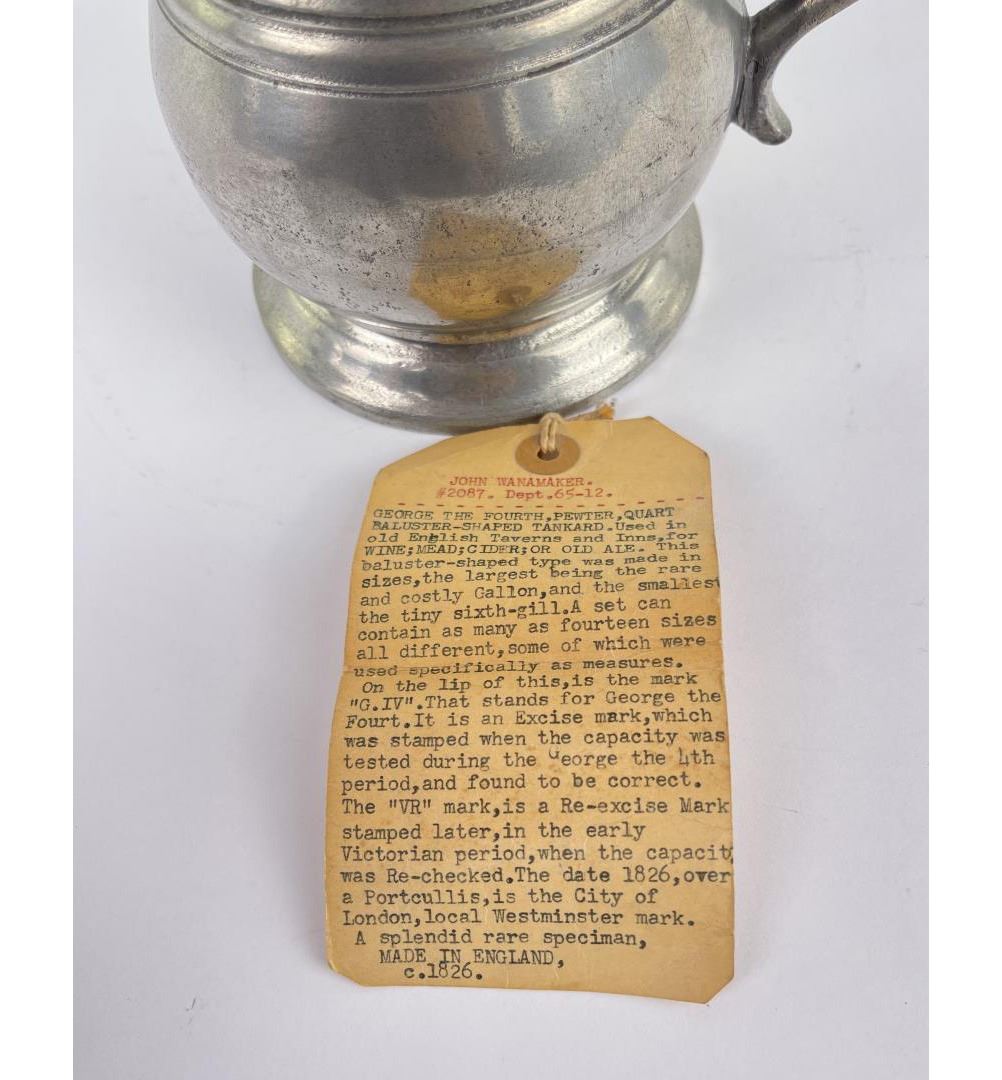 JOHN WANAMAKER.
#2087. Dept.65-12.
GEORGE THE FOURTH,PEWTER,QUART
BALUSTER-SHAPED TANKARD.Used in
old English Taverns and Inns,for
WINE;MEAD;CIDER;OR OLD ALE. This
baluster-shaped type was made in
sizes,the largest being the rare
and costly Gallon,and the smallest
the tiny sixth-gill.A set can
contain as many as fourteen sizes
all different,some of which were
used specifically as measures.
On the lip of this,is the mark
"G.IV".That stands for George the
Fourt.It is an Excise mark,which
was stamped when the capacity was
tested during the George the 4th
period,and found to be correct.
The "VR" mark,is a Re-excise Mark
stamped later,in the early
Victorian period,when the capacity
was Re-checked.The date 1826,over
a Portcullis,is the City of
London,local Westminster mark.
A splendid rare speciman,
MADE IN ENGLAND,
c.1826.